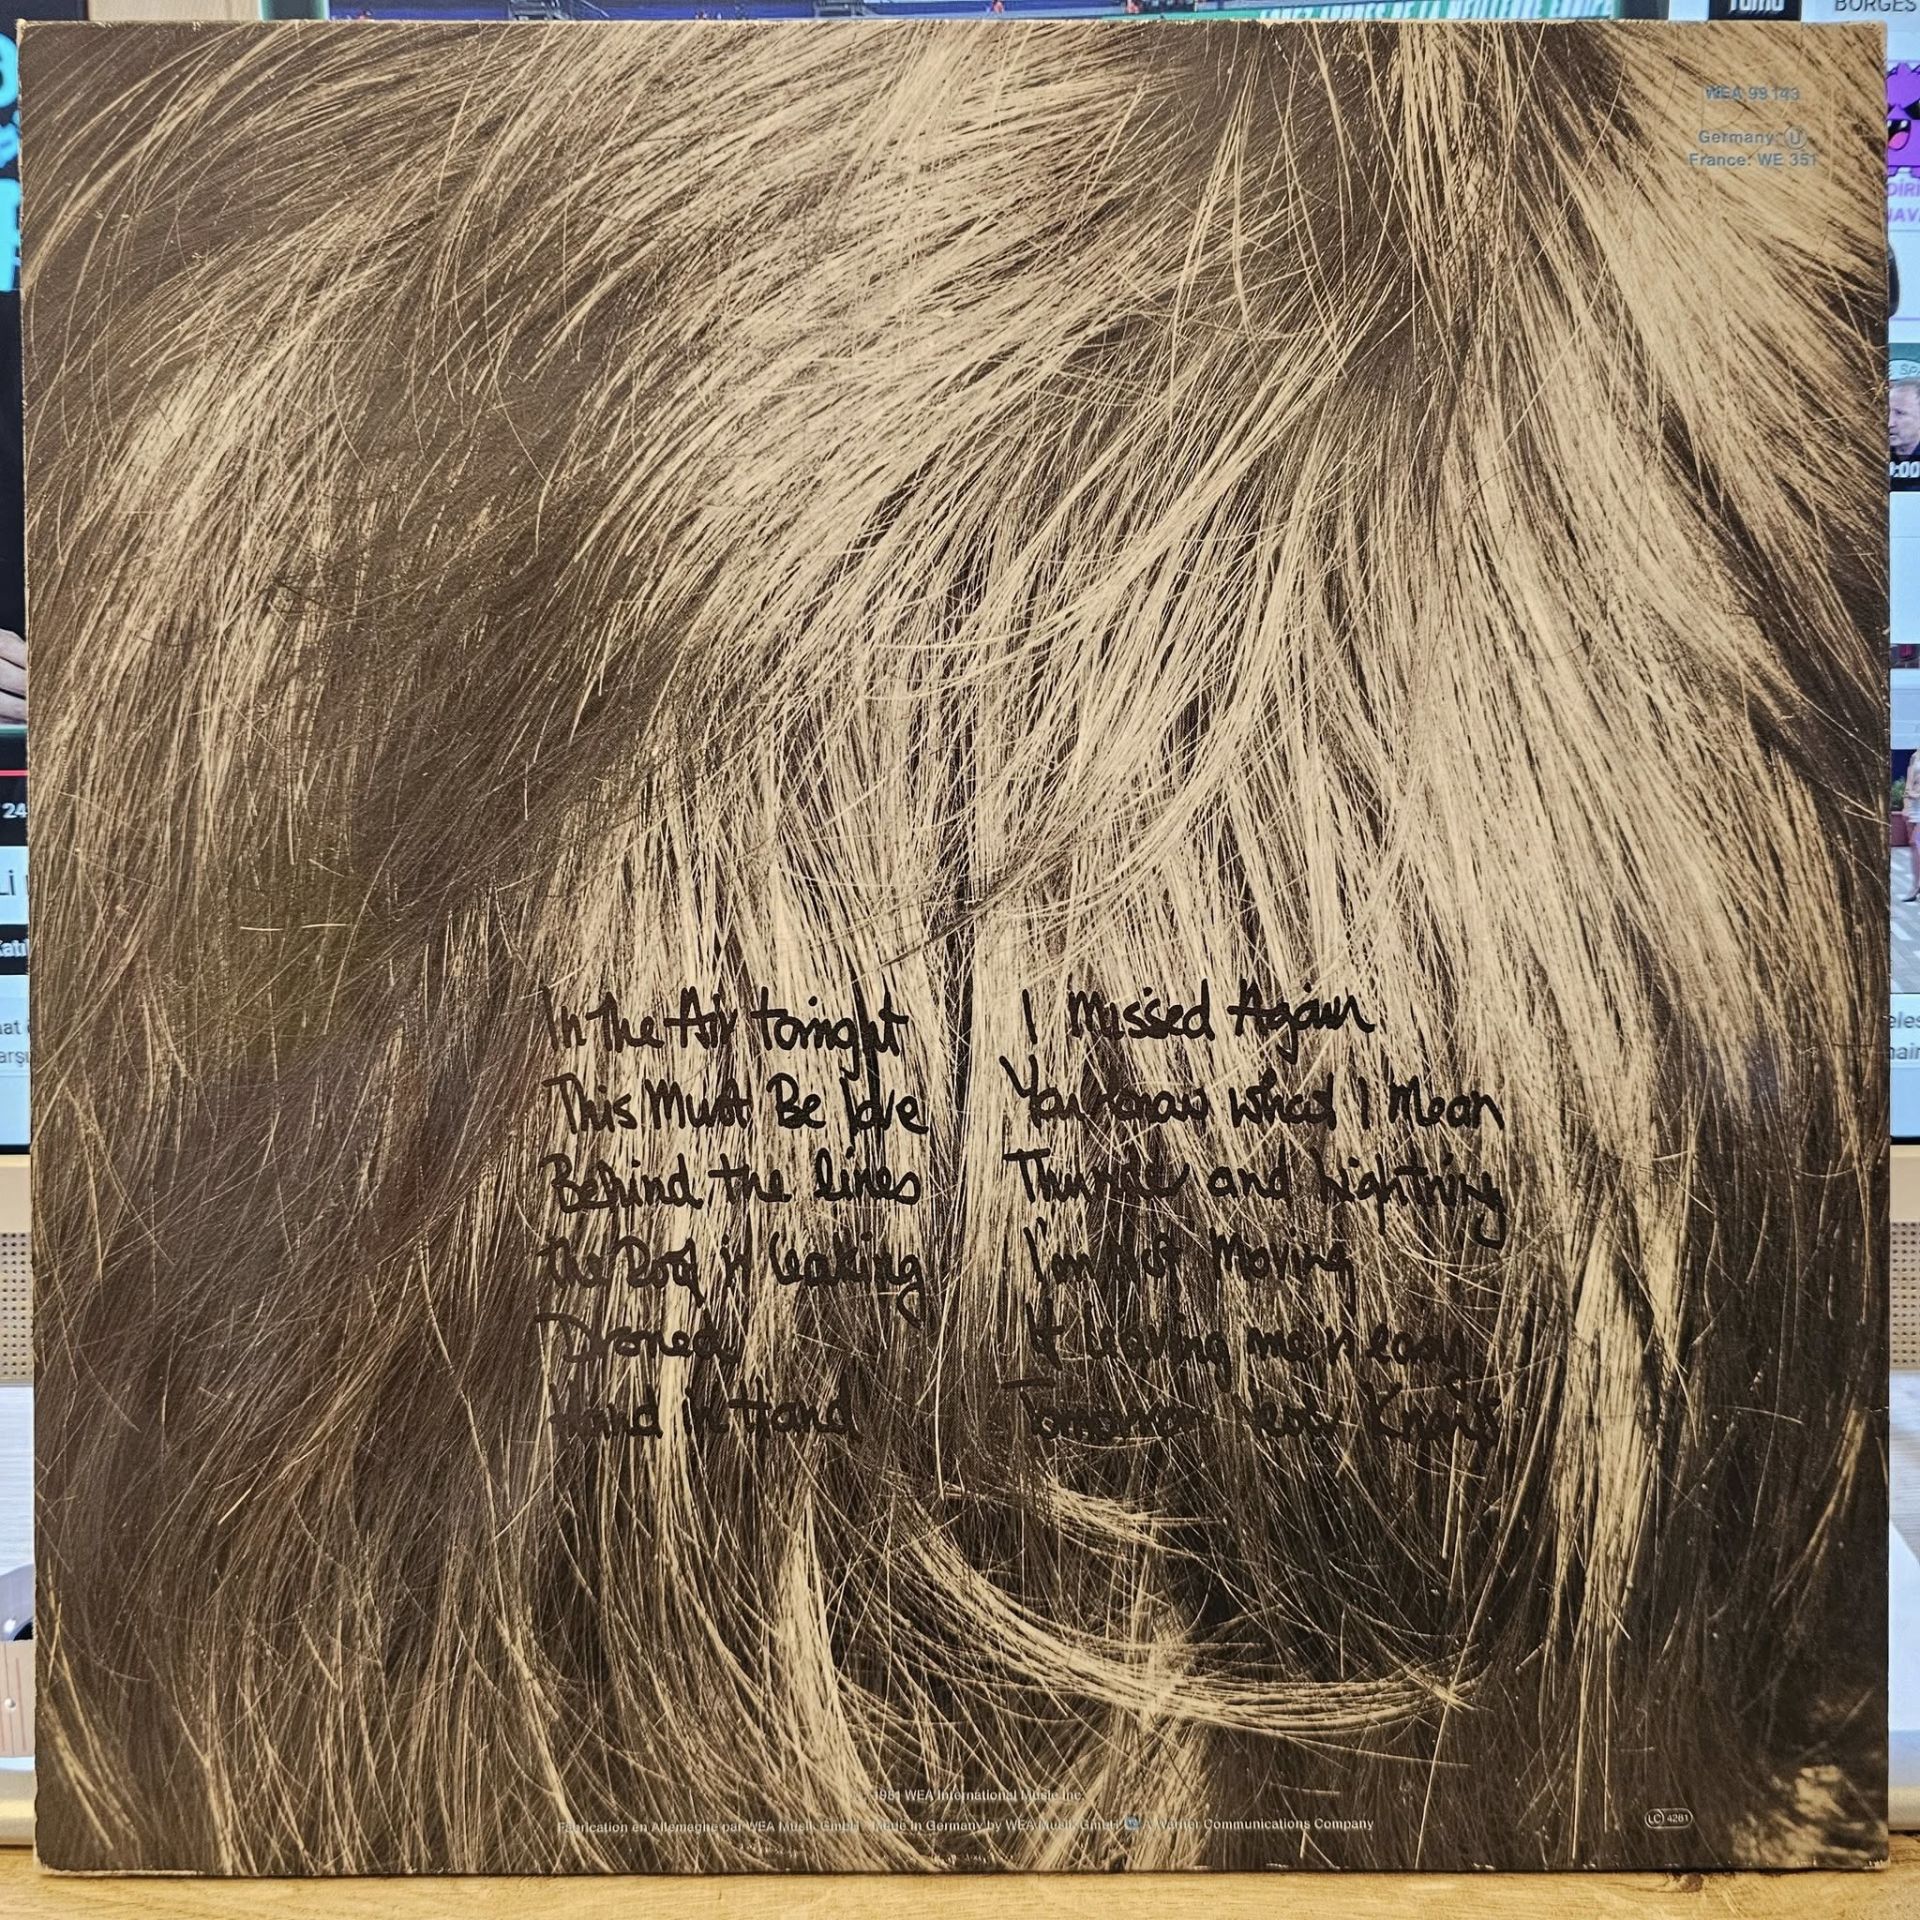 WEA 99 143
Germany: U
France: WE 351
In the Air tonight
This Must Be love
Behind the lines
the Roof is leaking
Droned
Hand in Hand
I Missed Again
You know what I Mean
Thunder and Lightning
I'm Not Moving
If leaving me is easy
Tomorrow Never Knows
1981 WEA International Music Inc.
Fabrication en Allemagne par WEA Musik GmbH Made in Germany by WEA Musik GmbH A Warner Communications Company
LC 4281
BORGES
24
:00